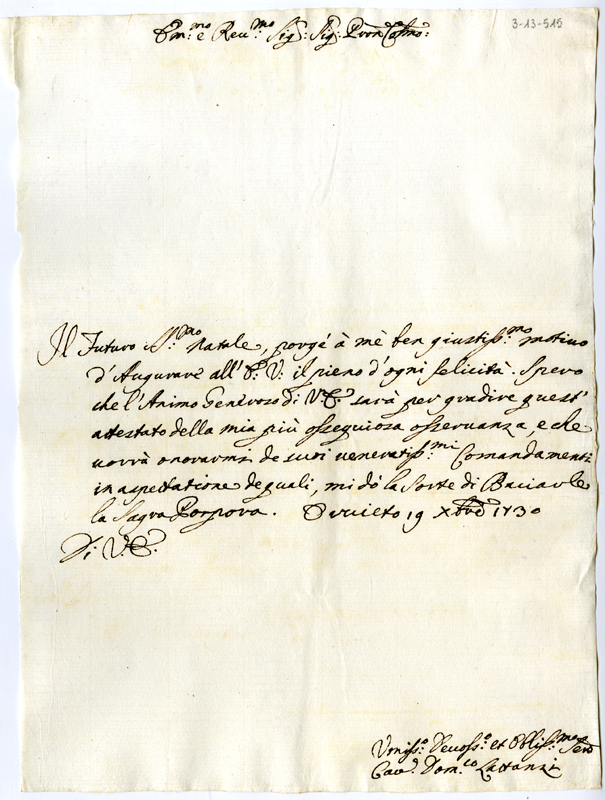 Em:mo e Reu:mo Sig: Sig: Pron Colmo:
3-13-515
Il Futuro S:mo Natale, porge à mè ben giustiss:mo motiuo
d'Augurare all'E: V: il pieno d'ogni felicità. Spero
che l'Animo Generoso di V.E. sarà per gradire quest'
attestato della mia più ossequiosa osseruanza, e che
uorrà onorarmi de suoi veneratiss:mi Comandamenti
in aspettatione de quali, mi dò la Sorte di Baciarle
la Sagra Porpora. Oruieto 19 Xbre 1730
Di V.E.
Vmiss:o Deuoss:o et Obliss:mo Sere
Cau: Dom:co Lattanzi